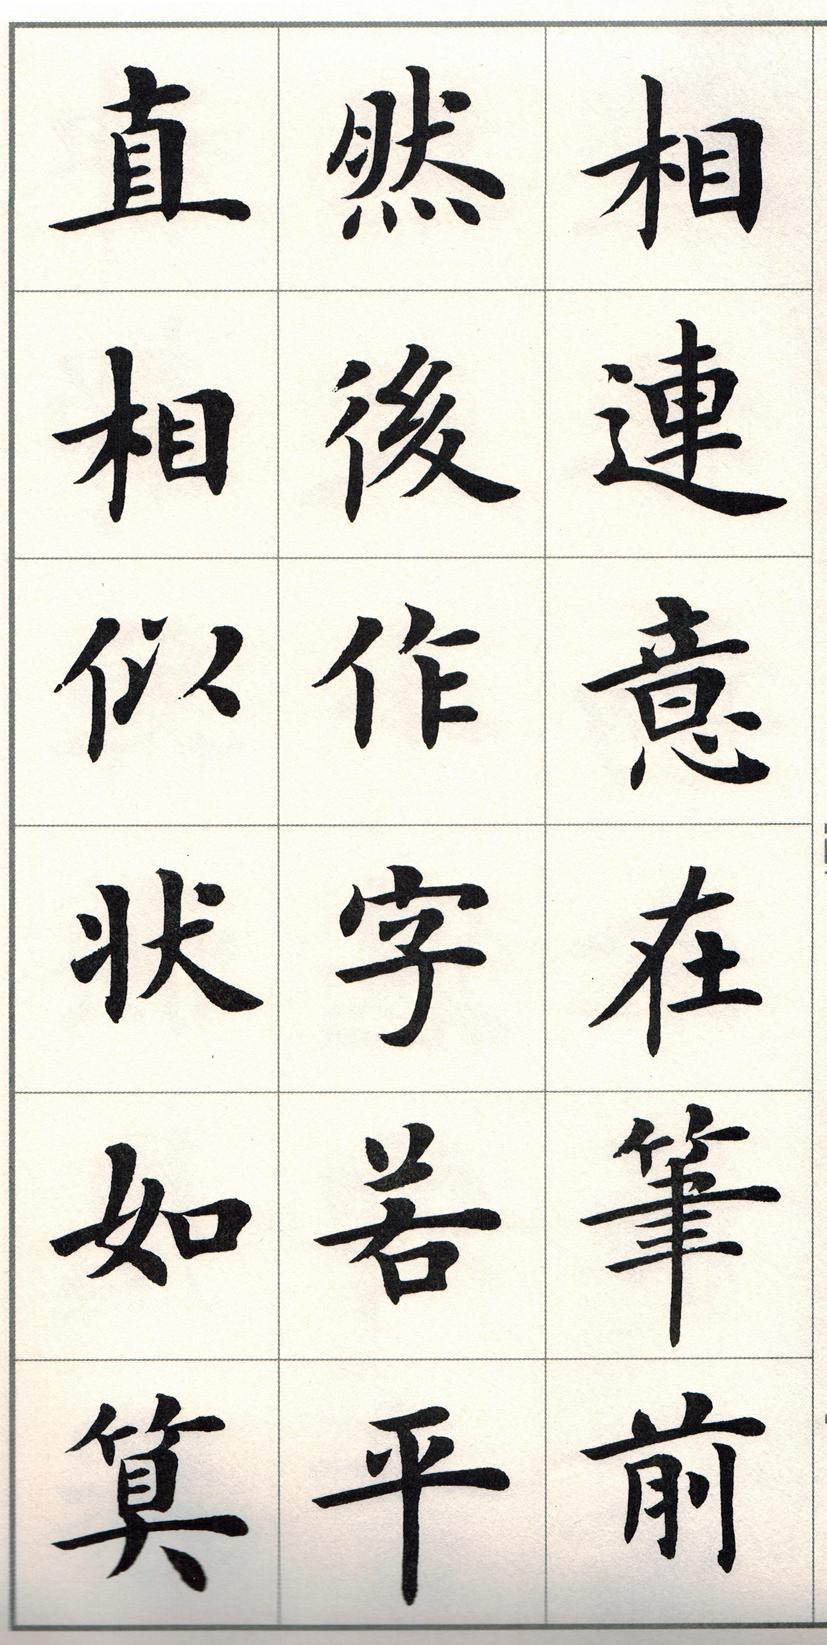 相連意在筆前
然後作字若平
直相似狀如筭